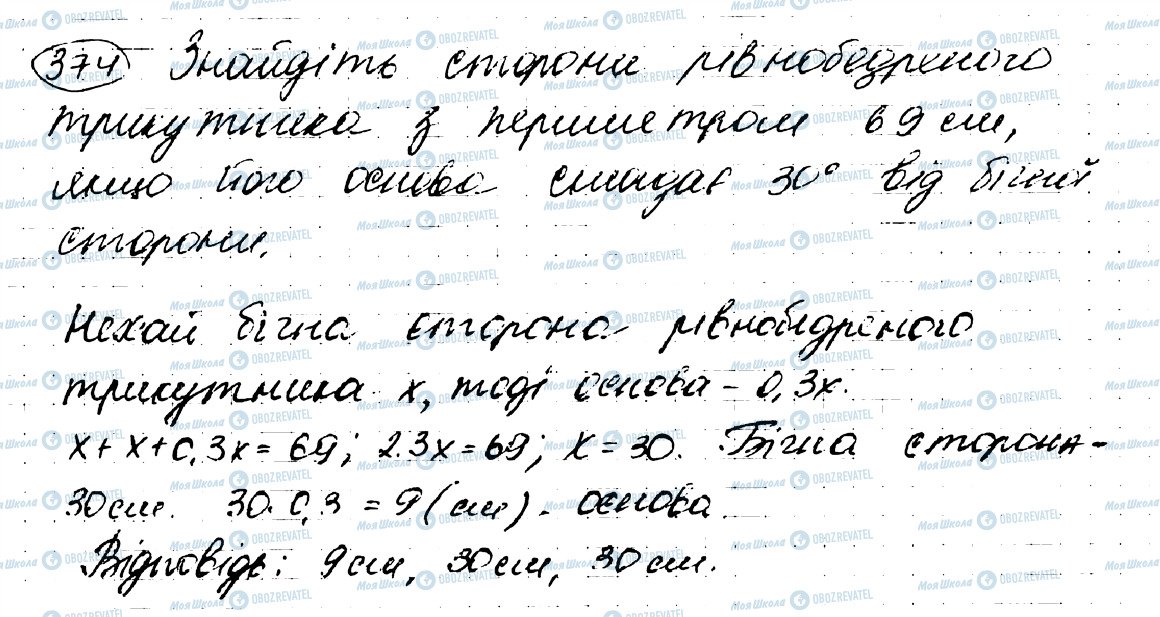 374 Знайдіть сторони рівнобедреного
трикутника з периметром 69 см,
якщо його основа складає 30° від бічної
сторони.
Нехай бічна сторона рівнобедреного
трикутника x, тоді основа - 0,3x.
x + x + 0,3x = 69; 2.3x = 69; x = 30. Бічна сторона -
30 см. 30 · 0,3 = 9 (см) - основа
Відповідь: 9 см, 30 см, 30 см.